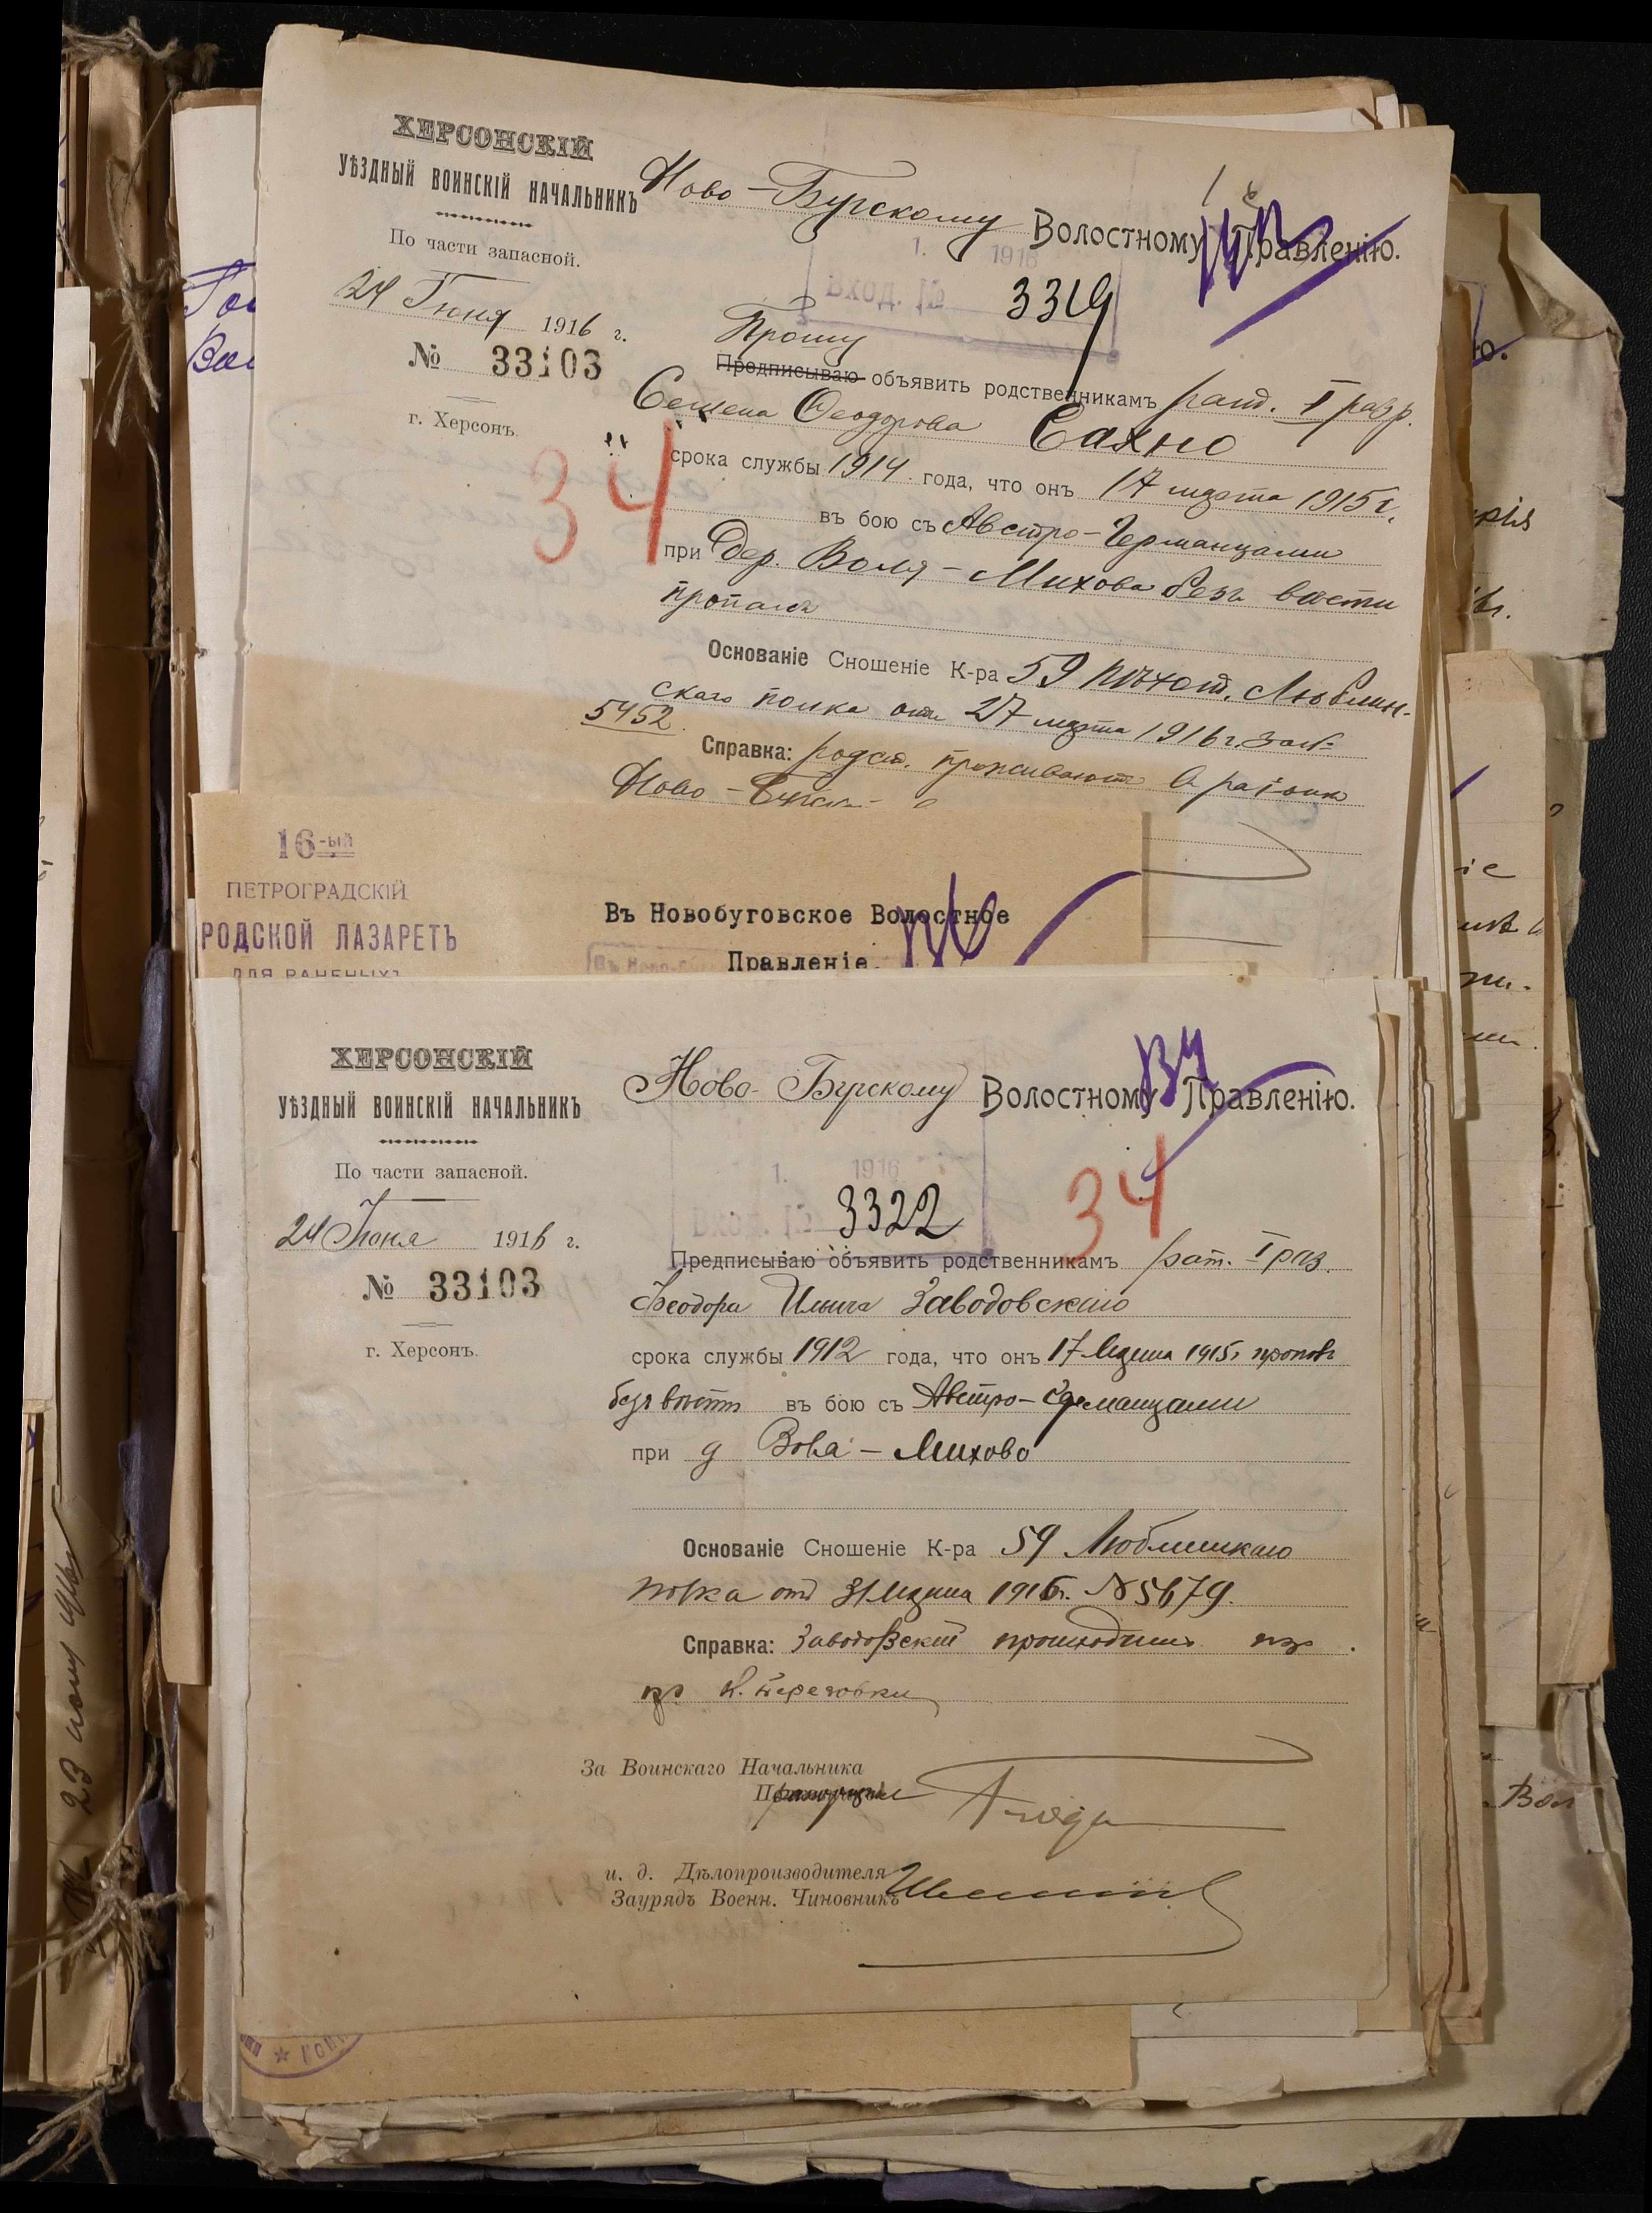 ХЕРСОНСКІЙ
УѢЗДНЫЙ ВОИНСКІЙ НАЧАЛЬНИКЪ
По части запасной.
24 Іюня 1916 г.
№ 33103
г. Херсонъ.
Ново-Бугскому Волостному Правленію.
1. 1916
Вход. № 3319
Прошу
Предписываю объявить родственникамъ рат. I разр.
Семена Ѳеодорова Сахно
34
срока службы 1914 года, что онъ 17 марта 1915 г.
въ бою съ Австро-Германцами
при дер. Воля-Михова безъ вѣсти
пропалъ
Основаніе Сношеніе К-ра 59 пѣхот. Люблин-
скаго полка отъ 27 марта 1916 г. за №
5452
Справка: родст. проживаютъ въ раіонѣ
Ново-
16-ый
ПЕТРОГРАДСКІЙ
РОДСКОЙ ЛАЗАРЕТЪ
ДЛЯ РАНЕНЫХЪ
Въ Новобуговское Волостное
Правленіе.
ХЕРСОНСКІЙ
УѢЗДНЫЙ ВОИНСКІЙ НАЧАЛЬНИКЪ
По части запасной.
24 Іюня 1916 г.
№ 33103
г. Херсонъ.
Ново-Бугскому Волостному Правленію.
34
1. 1916
Вход. № 3322
Предписываю объявить родственникамъ рат. I раз.
Ѳеодора Ильича Заводовскаго
срока службы 1912 года, что онъ 17 Марта 1915 г пропалъ
безъ вѣсти въ бою съ Австро-Германцами
при д Вола-Михово
Основаніе Сношеніе К-ра 59 Люблинскаго
полка отъ 31 Марта 1916 г. № 5679.
Справка: Заводовскій
изъ
За Воинскаго Начальника
и. д. Дѣлопроизводителя
Заурядъ Военн. Чиновникъ